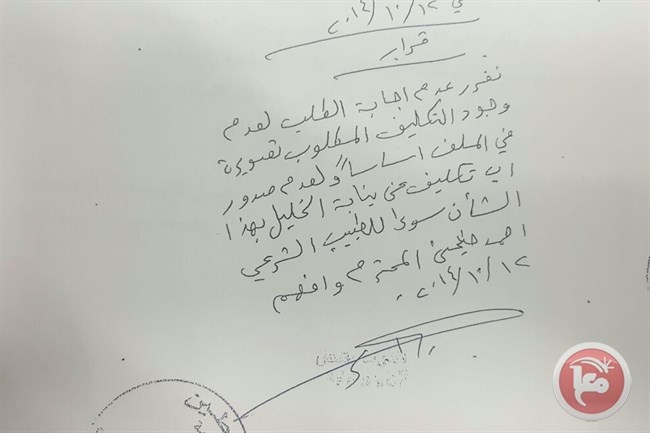 في ٢٠١٤/١٠/١٢
قرار
نقرر عدم اجابة الطلب لعدم
وجود التكليف المطلوب تصويره
في الملف اساساً ولعدم صدور
اي تكليف من نيابة الخليل بهذا
الشأن سوى للطبيب الشرعي
المحترم وافهم
٢٠١٤/١٠/١٢
معا